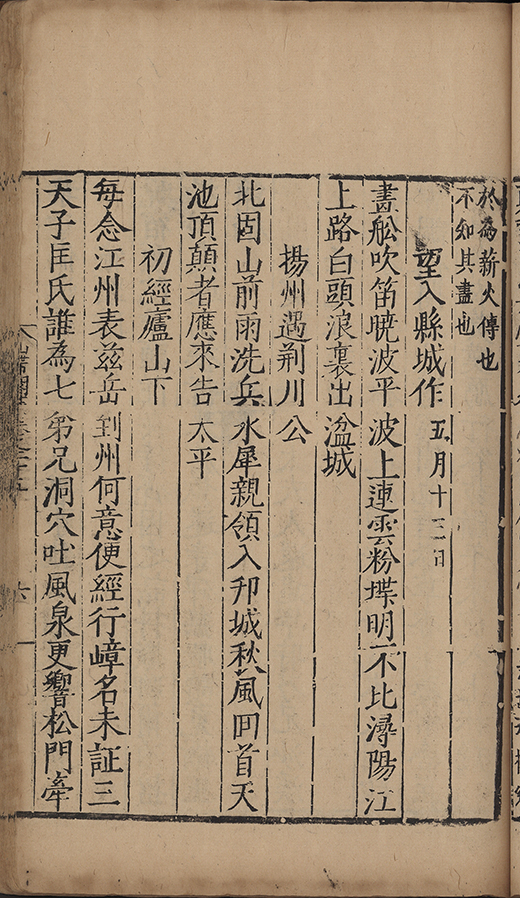 於為薪火傳也
不知其盡也
望入縣城作 五月十三日
畫舩吹笛曉波平 波上連雲粉堞明不比潯陽江
上路白頭浪裏出 湓城
揚州遇荊川 公
北固山前雨洗兵 水犀親領入邗城秋風回首天
池頂顛者應來告 太平
初經廬山下
每念江州表茲岳 到州何意便經行嶂名未証三
天子匡氏誰為七 弟兄洞穴吐風泉更響松門牽
六